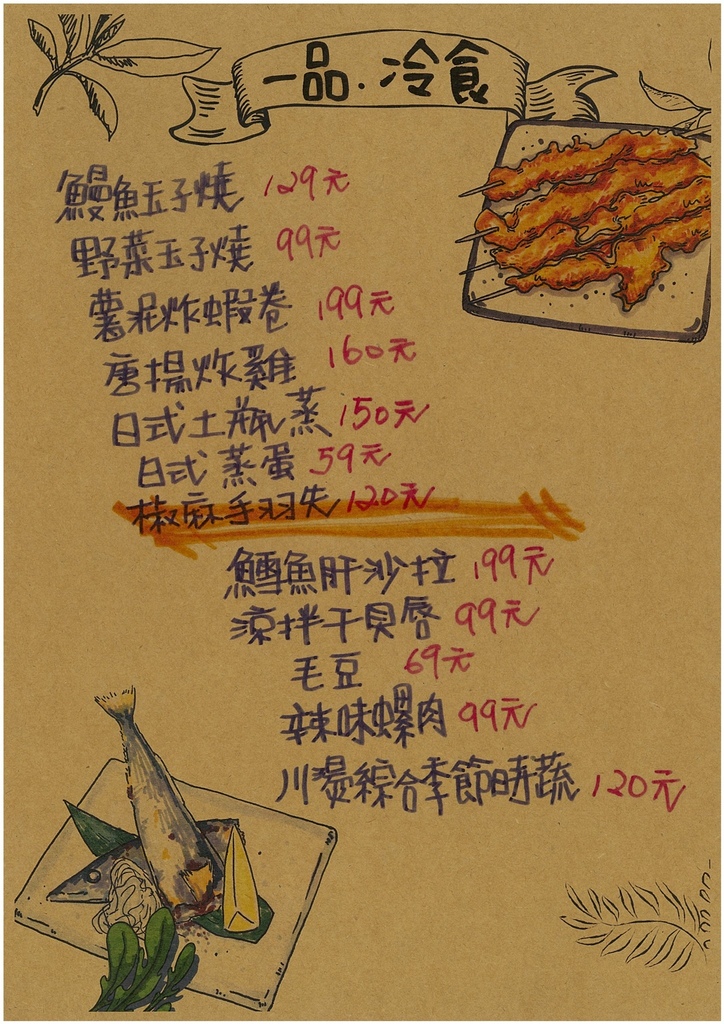 一品.冷食
鰻魚玉子燒 129元
野菜玉子燒 99元
薯泥炸蝦卷 199元
唐揚炸雞 160元
日式土瓶蒸 150元
日式蒸蛋 59元
椒麻手羽先 120元
鱈魚肝沙拉 199元
涼拌干貝唇 99元
毛豆 69元
辣味螺肉 99元
川燙綜合季節時蔬 120元